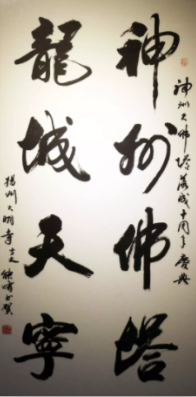 神州佛塔
龍城天寧
神州大佛塔落成十周年慶典
揚州大明寺